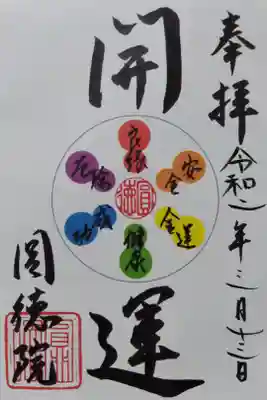 奉拝
令和二年三月十三日
開運
良縁
安全
金運
健康
成功
厄除
圓徳
圓徳院